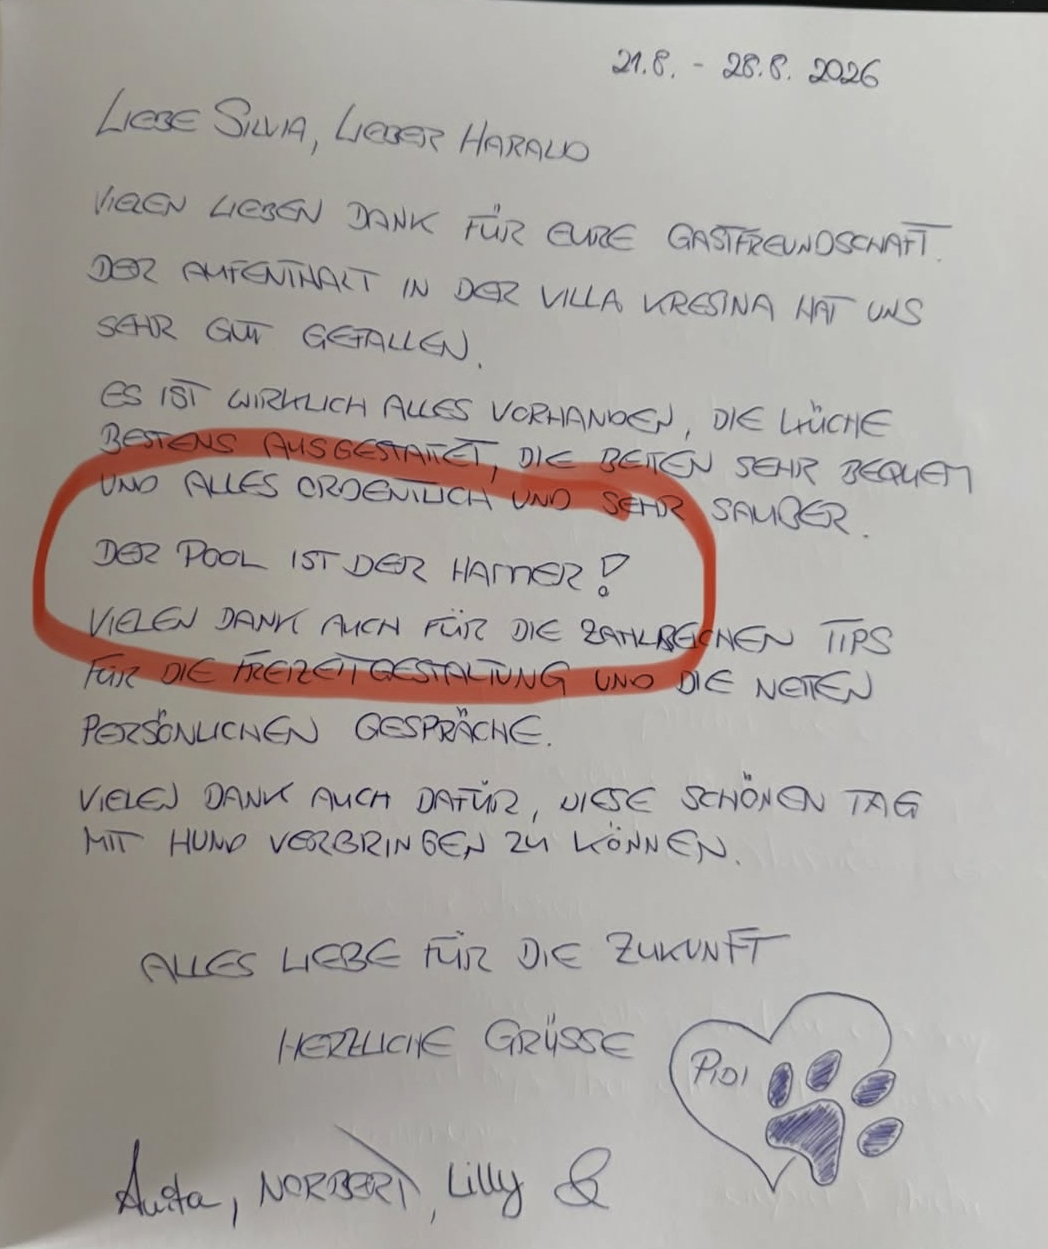 21.8. - 28.8. 2026
LIEBE SILVIA, LIEBER HARALD
VIELEN LIEBEN DANK FÜR EURE GASTFREUNDSCHAFT.
DER AUFENTHALT IN DER VILLA KRESINA HAT UNS
SEHR GUT GEFALLEN.
ES IST WIRKLICH ALLES VORHANDEN, DIE KÜCHE
BESTENS AUSGESTATTET, DIE BETTEN SEHR BEQUEM
UND ALLES ORDENTLICH UND SEHR SAUBER.
DER POOL IST DER HAMMER!
VIELEN DANK AUCH FÜR DIE ZAHLREICHEN TIPS
FÜR DIE FREIZEITGESTALTUNG UND DIE NETTEN
PERSÖNLICHEN GESPRÄCHE.
VIELEN DANK AUCH DAFÜR, DIESE SCHÖNEN TAG
MIT HUND VERBRINGEN ZU KÖNNEN.
ALLES LIEBE FÜR DIE ZUKUNFT
HERZLICHE GRÜSSE
PIDI
Anita, NORBERT, Lilly &